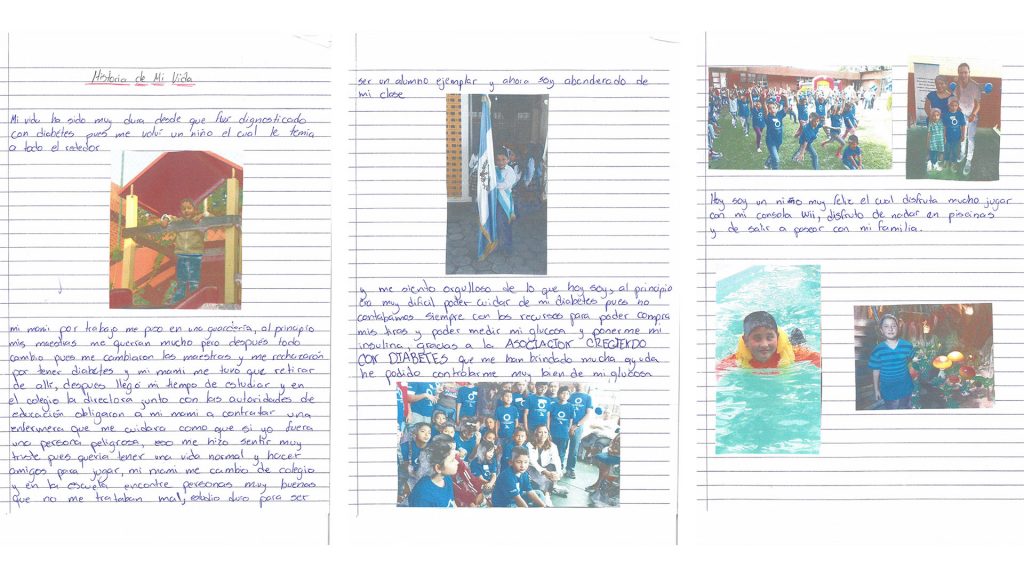 Historia de Mi Vida
Mi vida ha sido muy dura desde que fui dignosticado
con diabetes pues me volvi un niño el cual le temia
a todo el rededor
mi mami por trabajo me puso en una guarderia, al principio
mis maestras me querian mucho pero después todo
cambio pues me cambiaron las maestras y me rechazarón
por tener diabetes y mi mami me tuvo que retirar
de alli, despues llegó mi tiempo de estudiar y en
el colegio la directora junto con las autoridades de
educación obligaron a mi mami a contratar una
enfermera que me cuidara como que si yo fuera
una persona peligrosa, eso me hizo sentir muy
triste pues queria tener una vida normal y hacer
amigos para jugar, mi mami me cambio de colegio
y en la escuela encontre personas muy buenas
que no me trataban mal, estudio duro para ser
ser un alumno ejemplar y ahora soy abanderado de
mi clase
y me siento orgulloso de lo que hoy soy, al principio
era muy dificil poder cuidar de mi diabetes pues no
contabamos siempre con los recursos para poder comprar
mis tiras y poder medir mi glucosa y ponerme mi
insulina, gracias a la ASOCIACION CRECIENDO
CON DIABETES que me han brindado mucha ayuda
he podido controlarme muy bien de mi glucosa
Hoy soy un niño muy feliz el cual disfruta mucho jugar
con mi consola Wii, disfruto de nadar en piscinas
y de salir a pasear con mi familia.